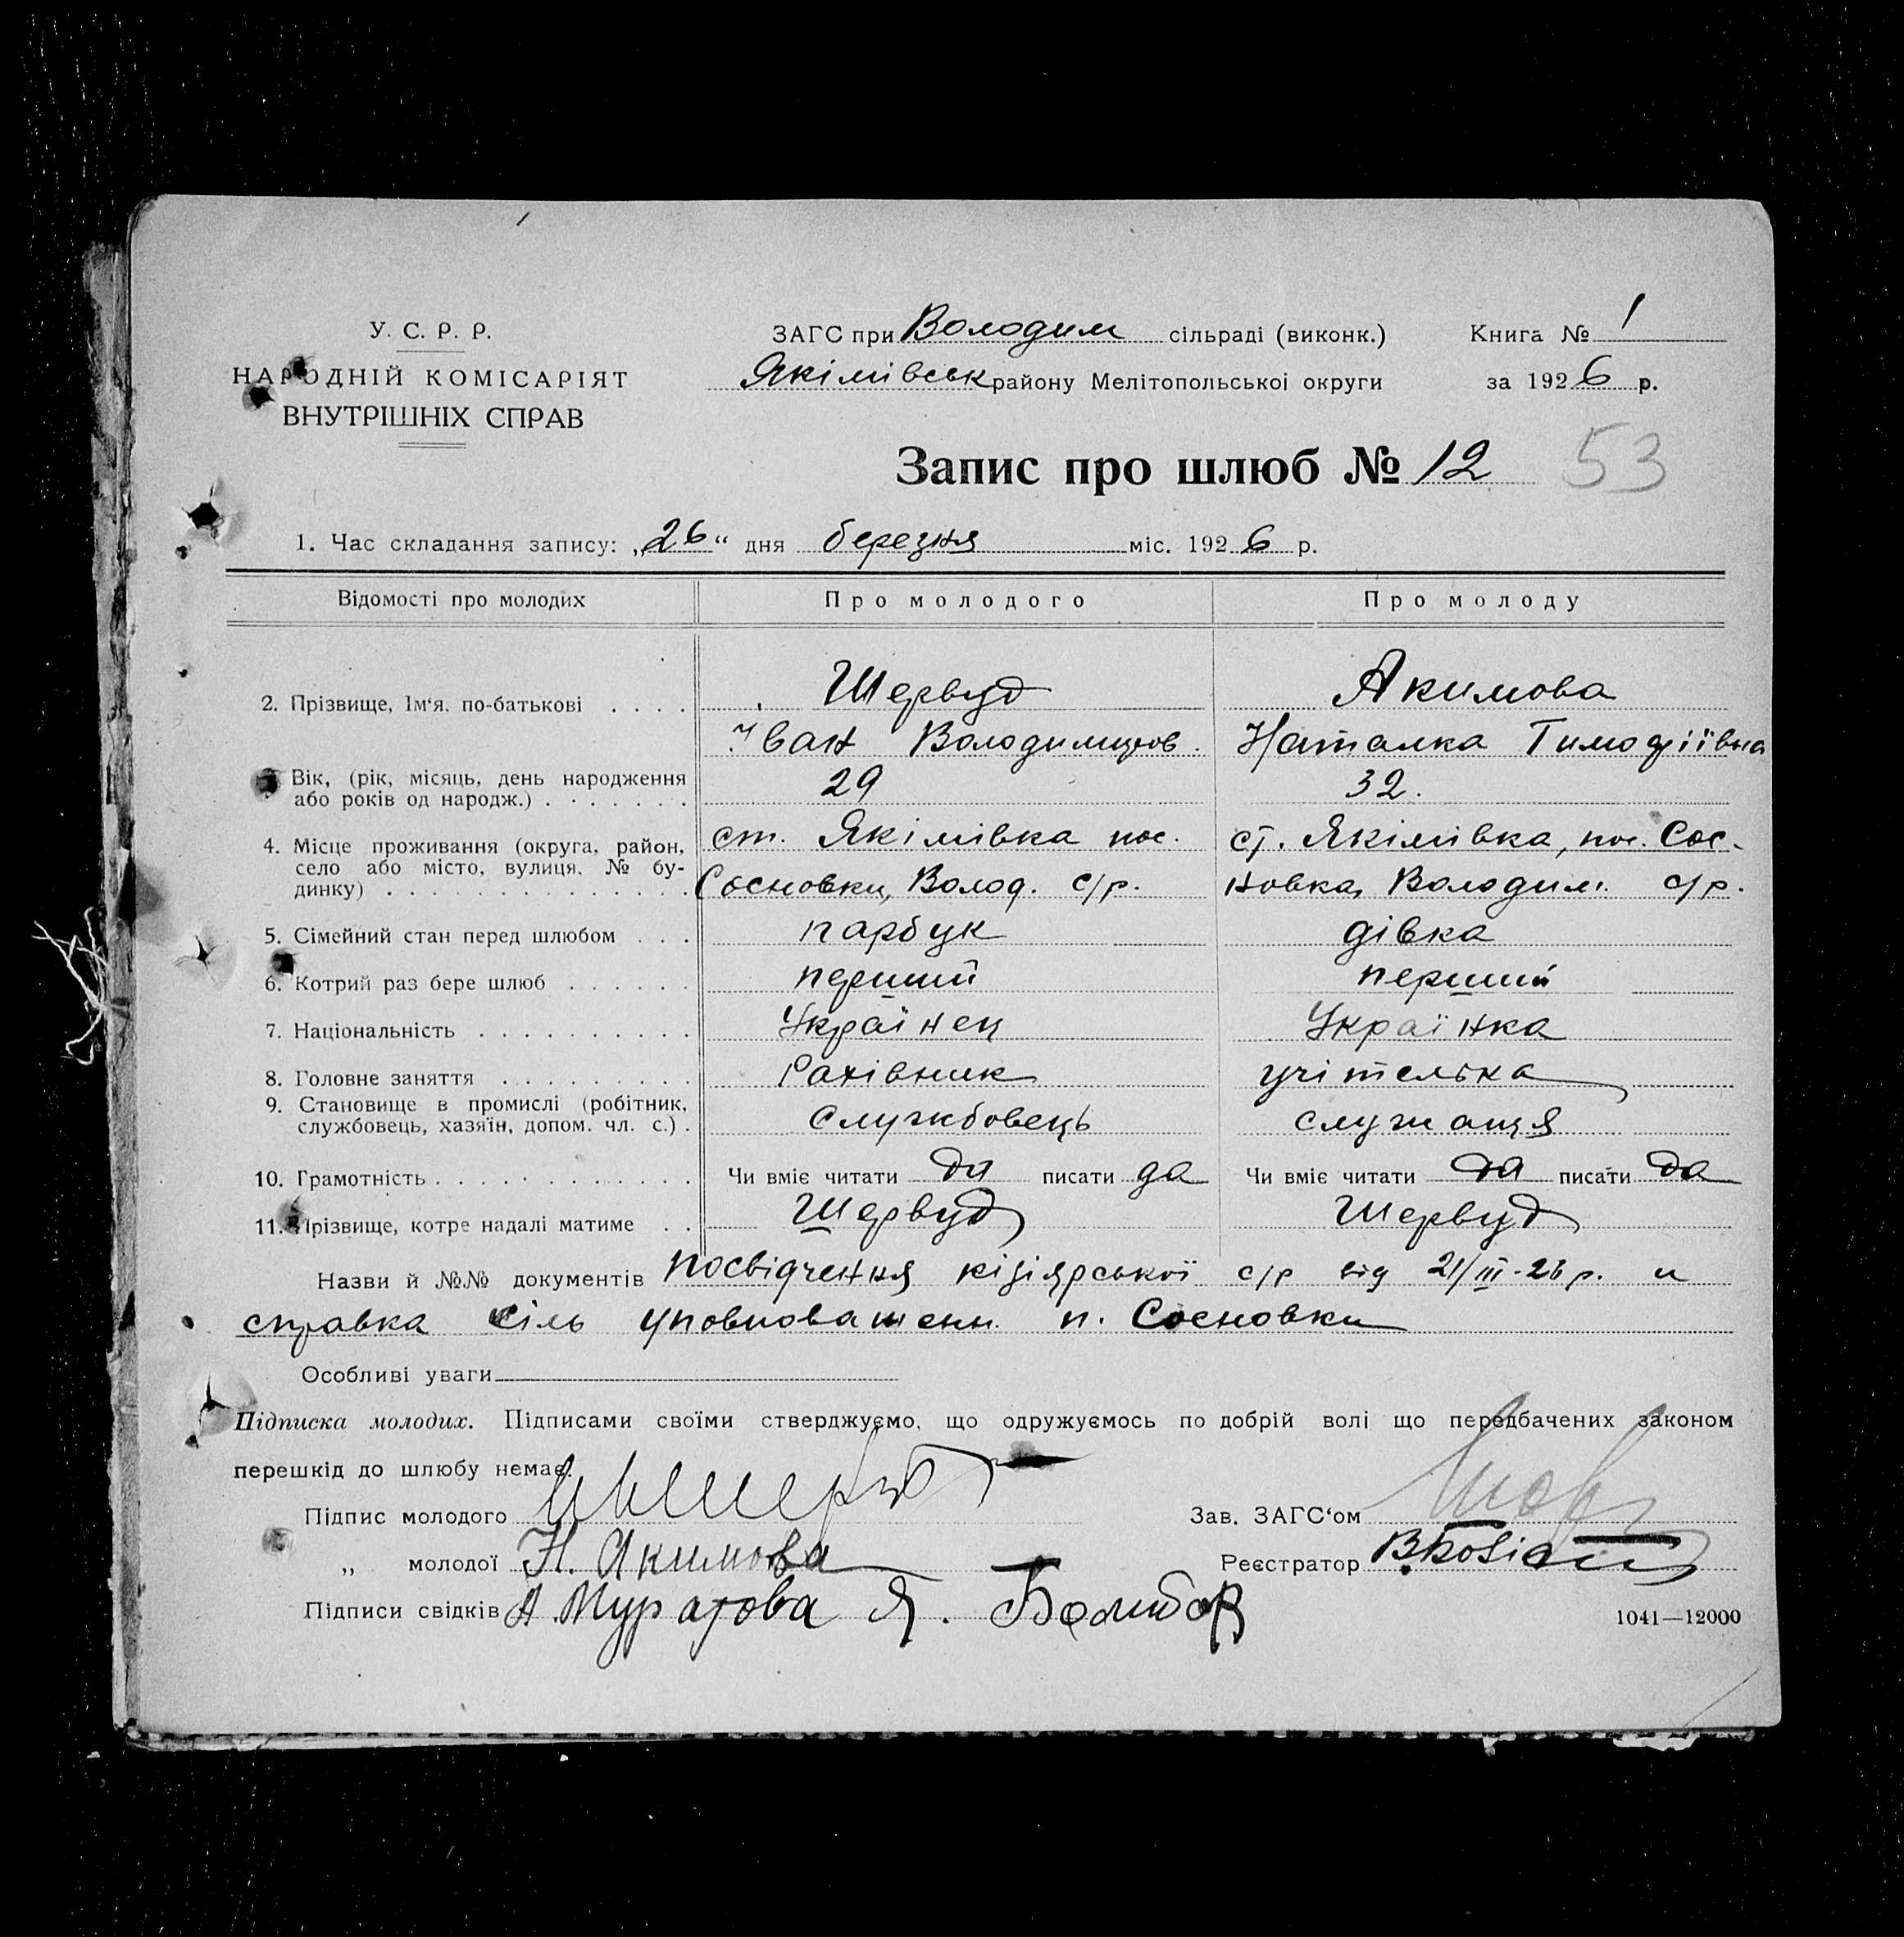 У. С. Р. Р.
НАРОДНІЙ КОМІСАРІЯТ
ВНУТРІШНІХ СПРАВ
ЗАГС при Володим сільраді (виконк.)
Якімівськ району Мелітопольської округи
Книга № 1
за 1926 р.
Запис про шлюб № 12
53
1. Час складання запису: „26“ дня березня міс. 1926 р.
Відомості про молодих Про молодого Про молоду
2. Прізвище, Ім‘я. по-батькові . . . . Шервуд Акимова
Іван Володимиров. Наталка Тимофіївна
3. Вік, (рік, місяць, день народження
або років од народж.) . . . . . . . 29 32.
4. Місце проживання (округа, район, ст. Якімівка пос. ст. Якімівка, пос. Сос-
село або місто, вулиця, № бу-
динку) . . . . . . . . . . . . . . Сосновки, Волод. с/р. новка, Володим. с/р.
5. Сімейний стан перед шлюбом . . . парбук дівка
6. Котрий раз бере шлюб . . . . . . перший перший
7. Національність . . . . . . . . . Українец Українка
8. Головне заняття . . . . . . . . . Рахівник учітелька
9. Становище в промислі (робітник,
службовець, хазяїн, допом. чл. с.) . Службовець служащя
10. Грамотність . . . . . . . . . . . . Чи вміє читати да писати да Чи вміє читати да писати да
11. Прізвище, котре надалі матиме . . Шервуд Шервуд
Назви й №№ документів посвідчення кізіярської с/р від 21/III-26 р. и
справка сіль уповноважен. п. Сосновки
Особливі уваги
Підписка молодих. Підписами своїми стверджуємо, що одружуємось по добрій волі що передбачених законом
перешкід до шлюбу немає.
Підпис молодого
Зав. ЗАГС‘ом
„ молодої Н. Акимова
Реєстратор
Підписи свідків А. Муратова Я.
1041—12000